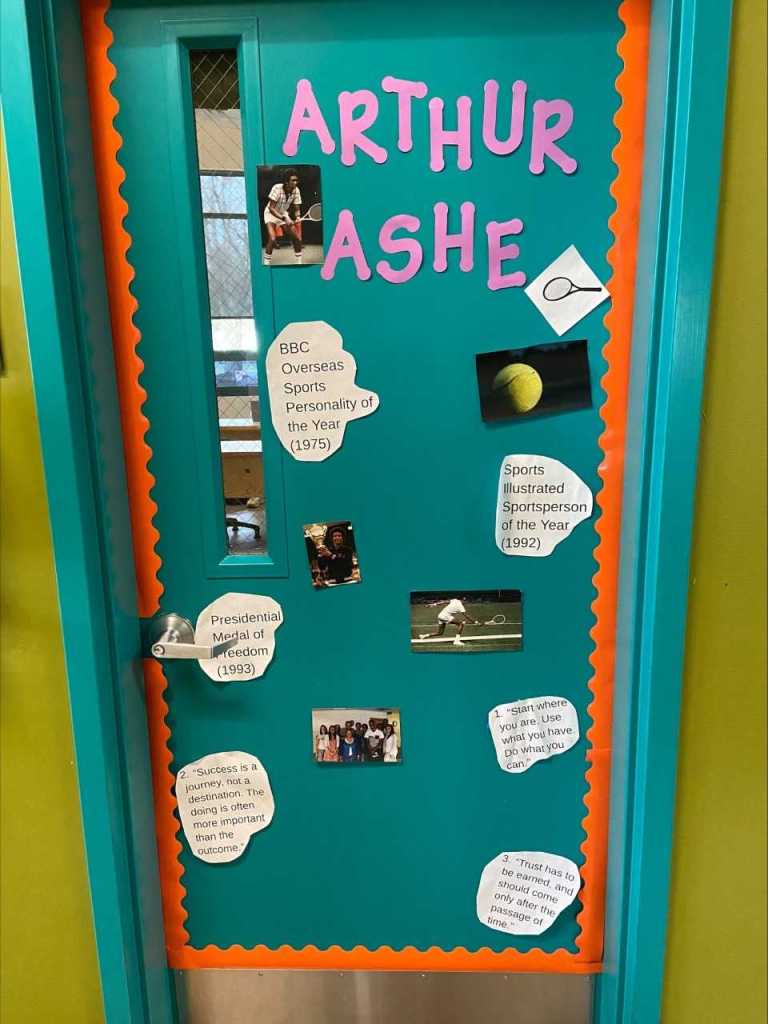 ARTHUR
ASHE
BBC
Overseas
Sports
Personality of
the Year
(1975)
Sports
Illustrated
Sportsperson
of the Year
(1992)
Presidential
Medal of
Freedom
(1993)
1. "Start where
you are. Use
what you have.
Do what you
can."
2. "Success is a
journey, not a
destination. The
doing is often
more important
than the
outcome."
3. "Trust has to
be earned, and
should come
only after the
passage of
time."